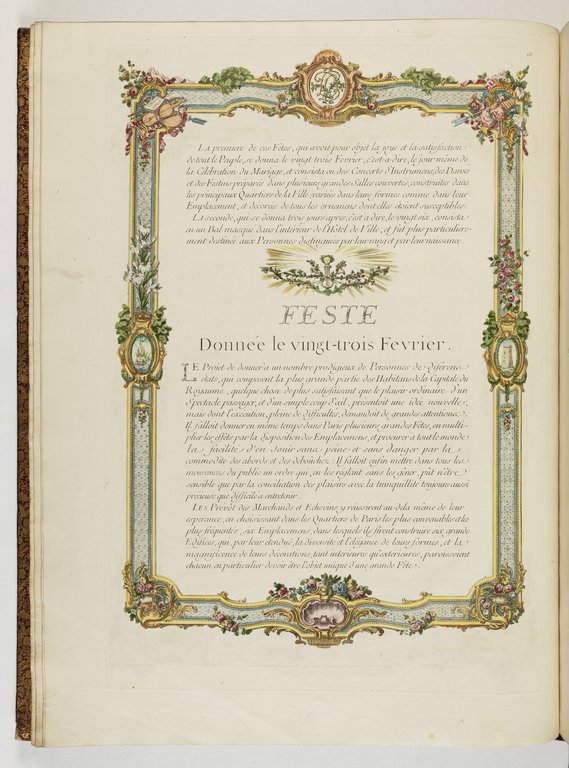 LA premiere de ces Fêtes, qui avoit pour objet la joye et la satisfaction
de tout le Peuple, se donna le vingt trois Fevrier, c'est à dire, le jour même de
la Célébration du Mariage, et consista en des Concerts d'Instrumens, des Danses
et des Festins préparés dans plusieurs grandes Salles couvertes, construites dans
les principaux Quartiers de la Ville, variées dans leurs formes comme dans leur
Emplacement, et décorées de tous les ornemens dont elles étoient susceptibles.
LA seconde, qui se donna trois jours après, c'est à dire, le vingt-six, consista
en un Bal masqué dans l'intérieur de l'Hôtel de Ville, et fut plus particuliere-
ment destinée aux Personnes distinguées par leur rang et par leur naissance.
FESTE
Donneé le vingt-trois Fevrier.
LE Projet de donner a un nombre prodigieux de Personnes de diférens
états, qui composent la plus grande partie des Habitans de la Capitale du
Royaume, quelque chose de plus satisfaisant que le plaisir ordinaire d'un
Spectacle passager, et d'un simple coup d'œil, présentoit une idée nouvelle;
mais dont l'exécution, pleine de difficultés, demandoit de grandes attentions.
Il falloit donner en même tems dans Paris plusieurs grandes Fêtes, en multi-
plier les effets par la disposition des Emplacemens, et procurer a tout le monde
la facilité d'en Jouir sans peine et sans danger par la
commodité des abords et des débouchez: Il falloit enfin mettre dans tous les
mouvemens du public un ordre qui, en les réglant sans les gêner, pût n'être
sensible que par la conciliation des plaisirs avec la tranquillité toujours aussi
précieuse que difficile a entretenir.
LES Prévôt des Marchands et Echevins y réussirent au-delà même de leur
esperance, en choisissant dans les Quartiers de Paris les plus convenables et les
plus fréquentés, six Emplacemens, dans lesquels ils firent construire six grands
Edifices, qui, par leur étenduë, la diversité et l'élégance de leurs formes, et la
magnificence de leurs décorations, tant intérieures qu'extérieures, paroissoient
chacun en particulier devoir être l'objet unique d'une grande Fête.